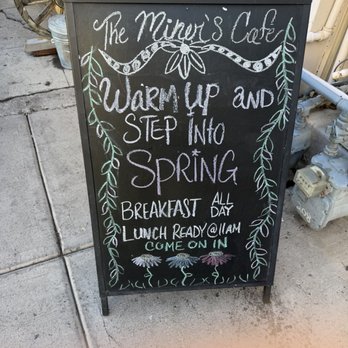 The Miner's Cafe
Warm Up and
Step Into
Spring
Breakfast All Day
Lunch Ready @ 11am
Come on in